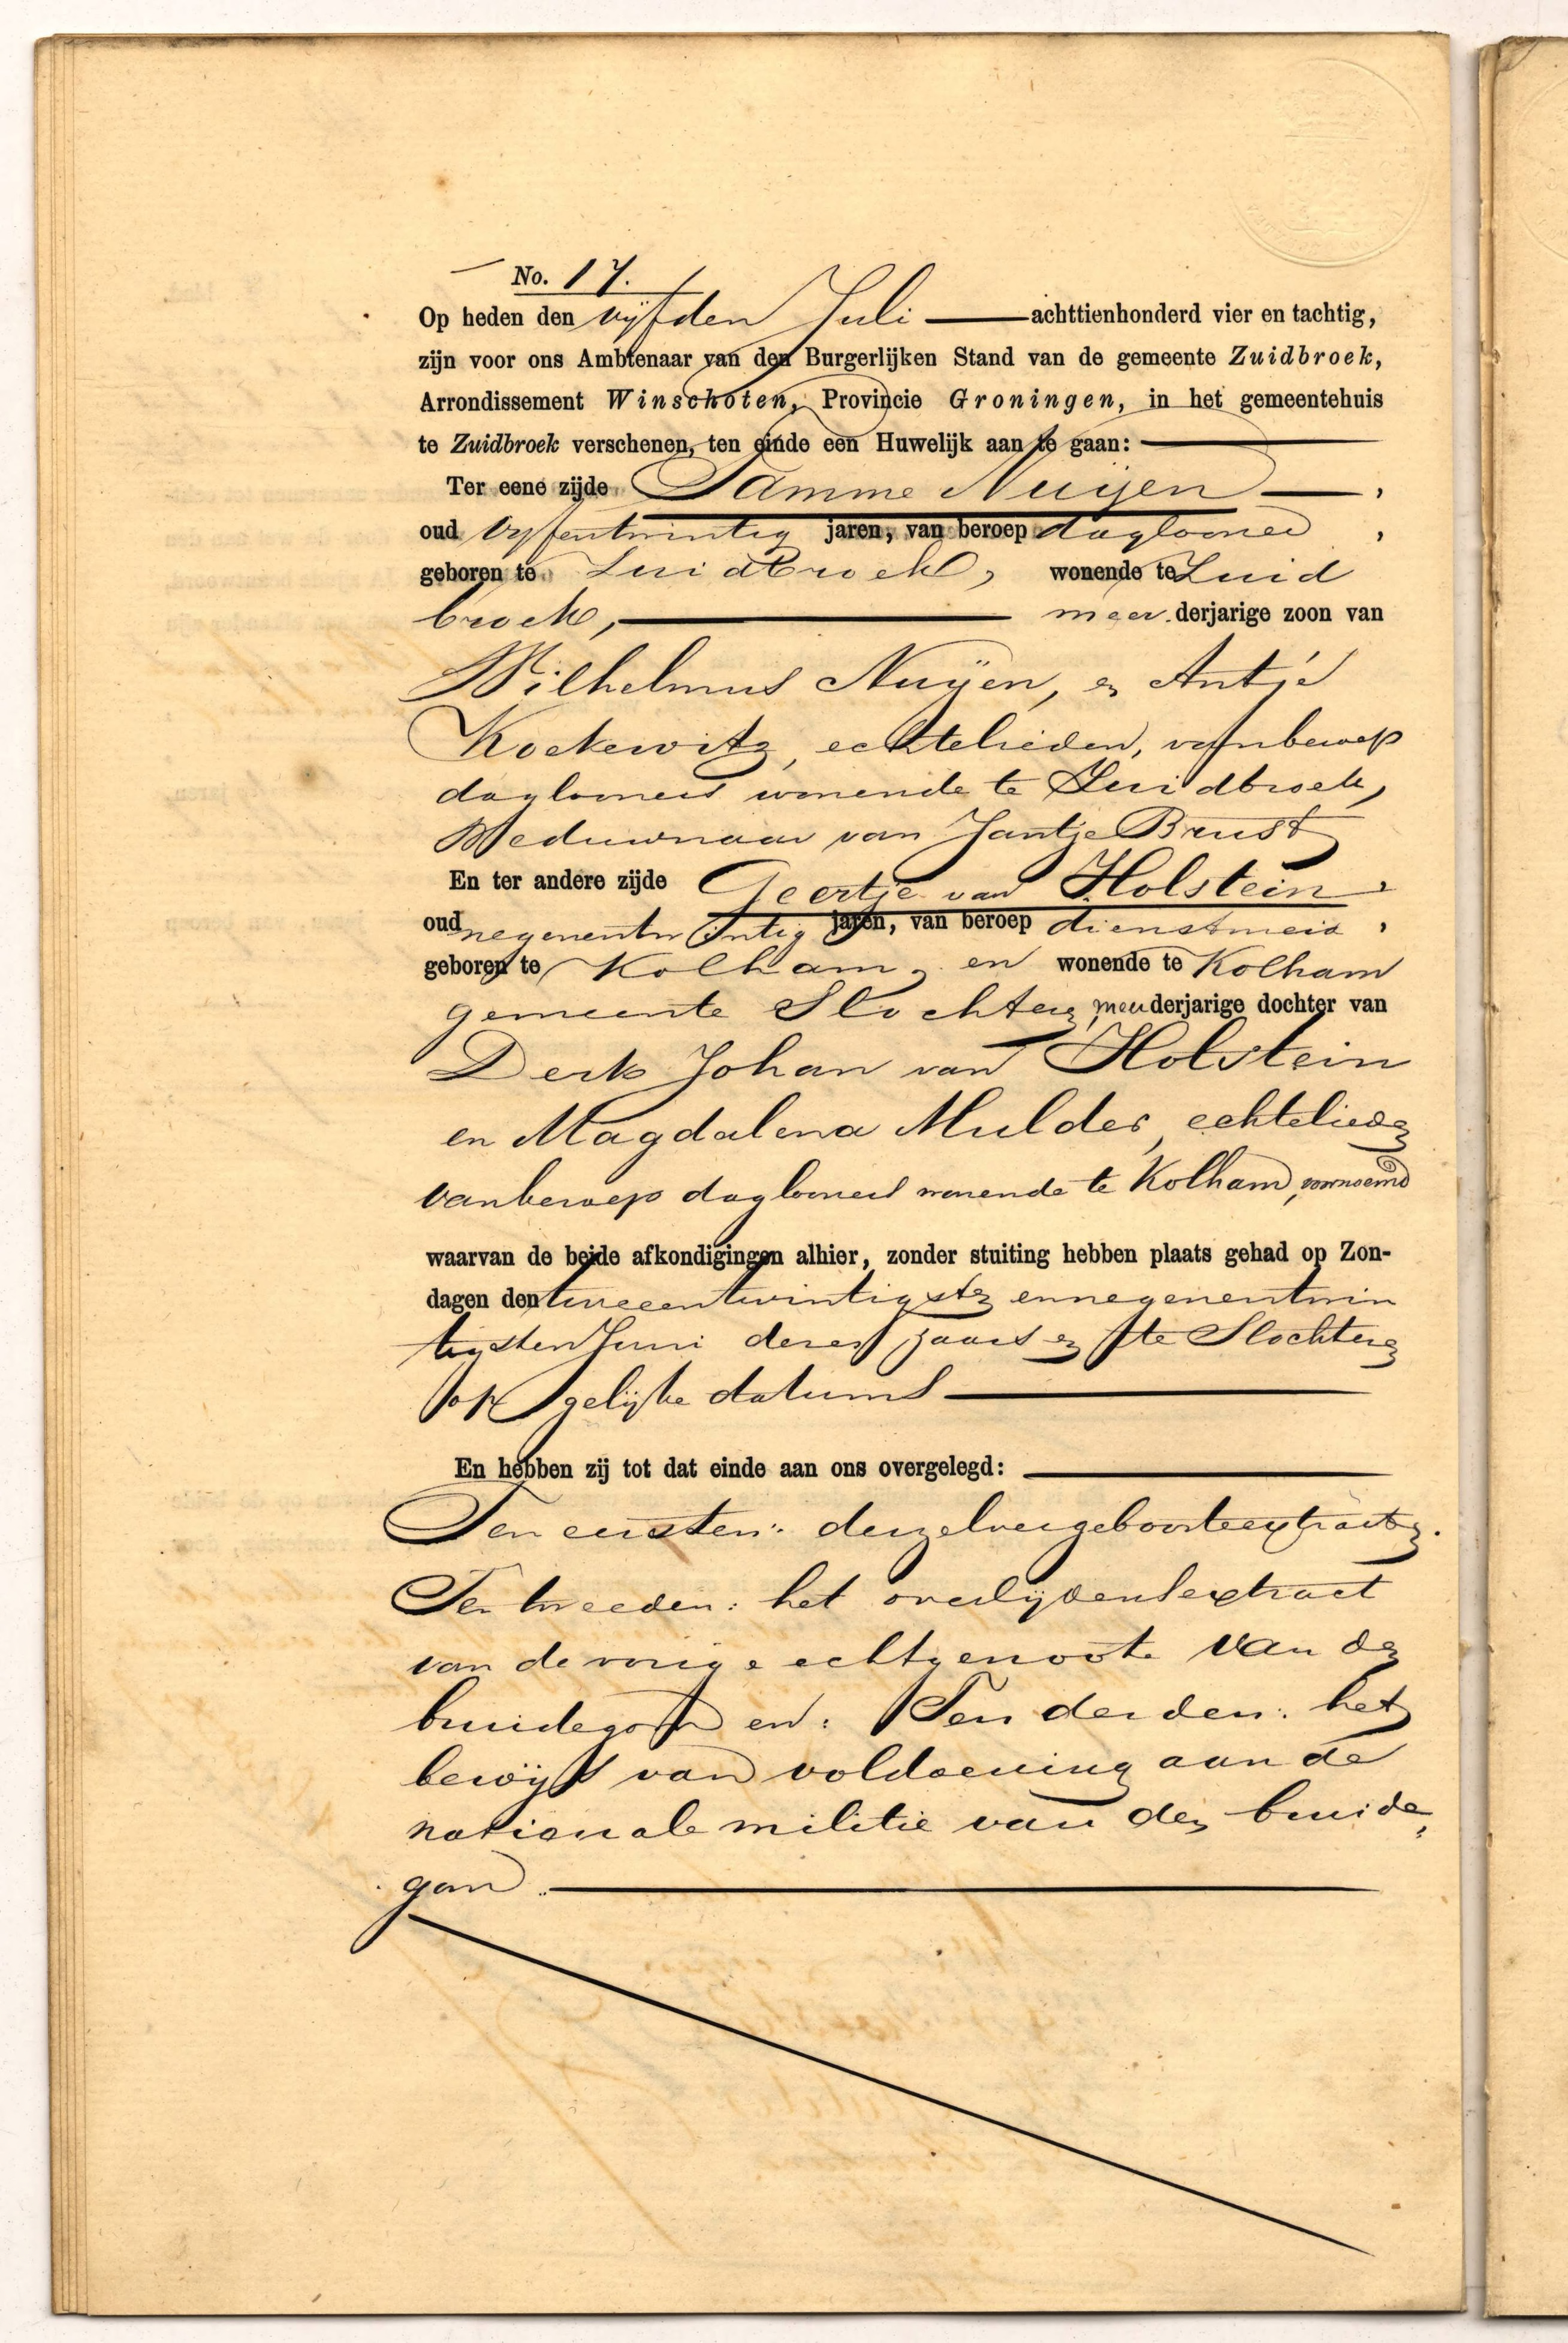 No. 17.
Op heden den vijfden Juli achttienhonderd vier en tachtig,
zijn voor ons Ambtenaar van den Burgerlijken Stand van de gemeente Zuidbroek,
Arrondissement Winschoten, Provincie Groningen, in het gemeentehuis
te Zuidbroek verschenen, ten einde een Huwelijk aan te gaan:
Ter eene zijde Tamme Nuijen,
oud vyfentwintig jaren, van beroep daglooner,
geboren te Zuidbroek, wonende te Zuid
broek, meerderjarige zoon van
Wilhelmus Nuijen, en Antje
Koekewitz, echtelieden, van beroep
dagloners wonende te Zuidbroek,
Weduwnaar van Jantje Brust
En ter andere zijde Geertje van Holstein,
oud negenentwintig jaren, van beroep dienstmeid,
geboren te Kolham, en wonende te Kolham
gemeente Slochteren, meerderjarige dochter van
Derk Johan van Holstein
en Magdalena Mulder, echtelieden
van beroep dagloners wonende te Kolham, voornoemd
waarvan de beide afkondigingen alhier, zonder stuiting hebben plaats gehad op Zon-
dagen den tweeentwintigsten en negenentwin
tigsten Juni dezes jaars en te Slochteren
op gelijke datums
En hebben zij tot dat einde aan ons overgelegd:
Ten eersten: derzelver geboorteextracten.
Ten tweeden: het overlijdensextract
van de vorige echtgenoote van den
bruidegom en: Ten derden: het
bewijs van voldoening aan de
nationale militie van den bruide,
gom.